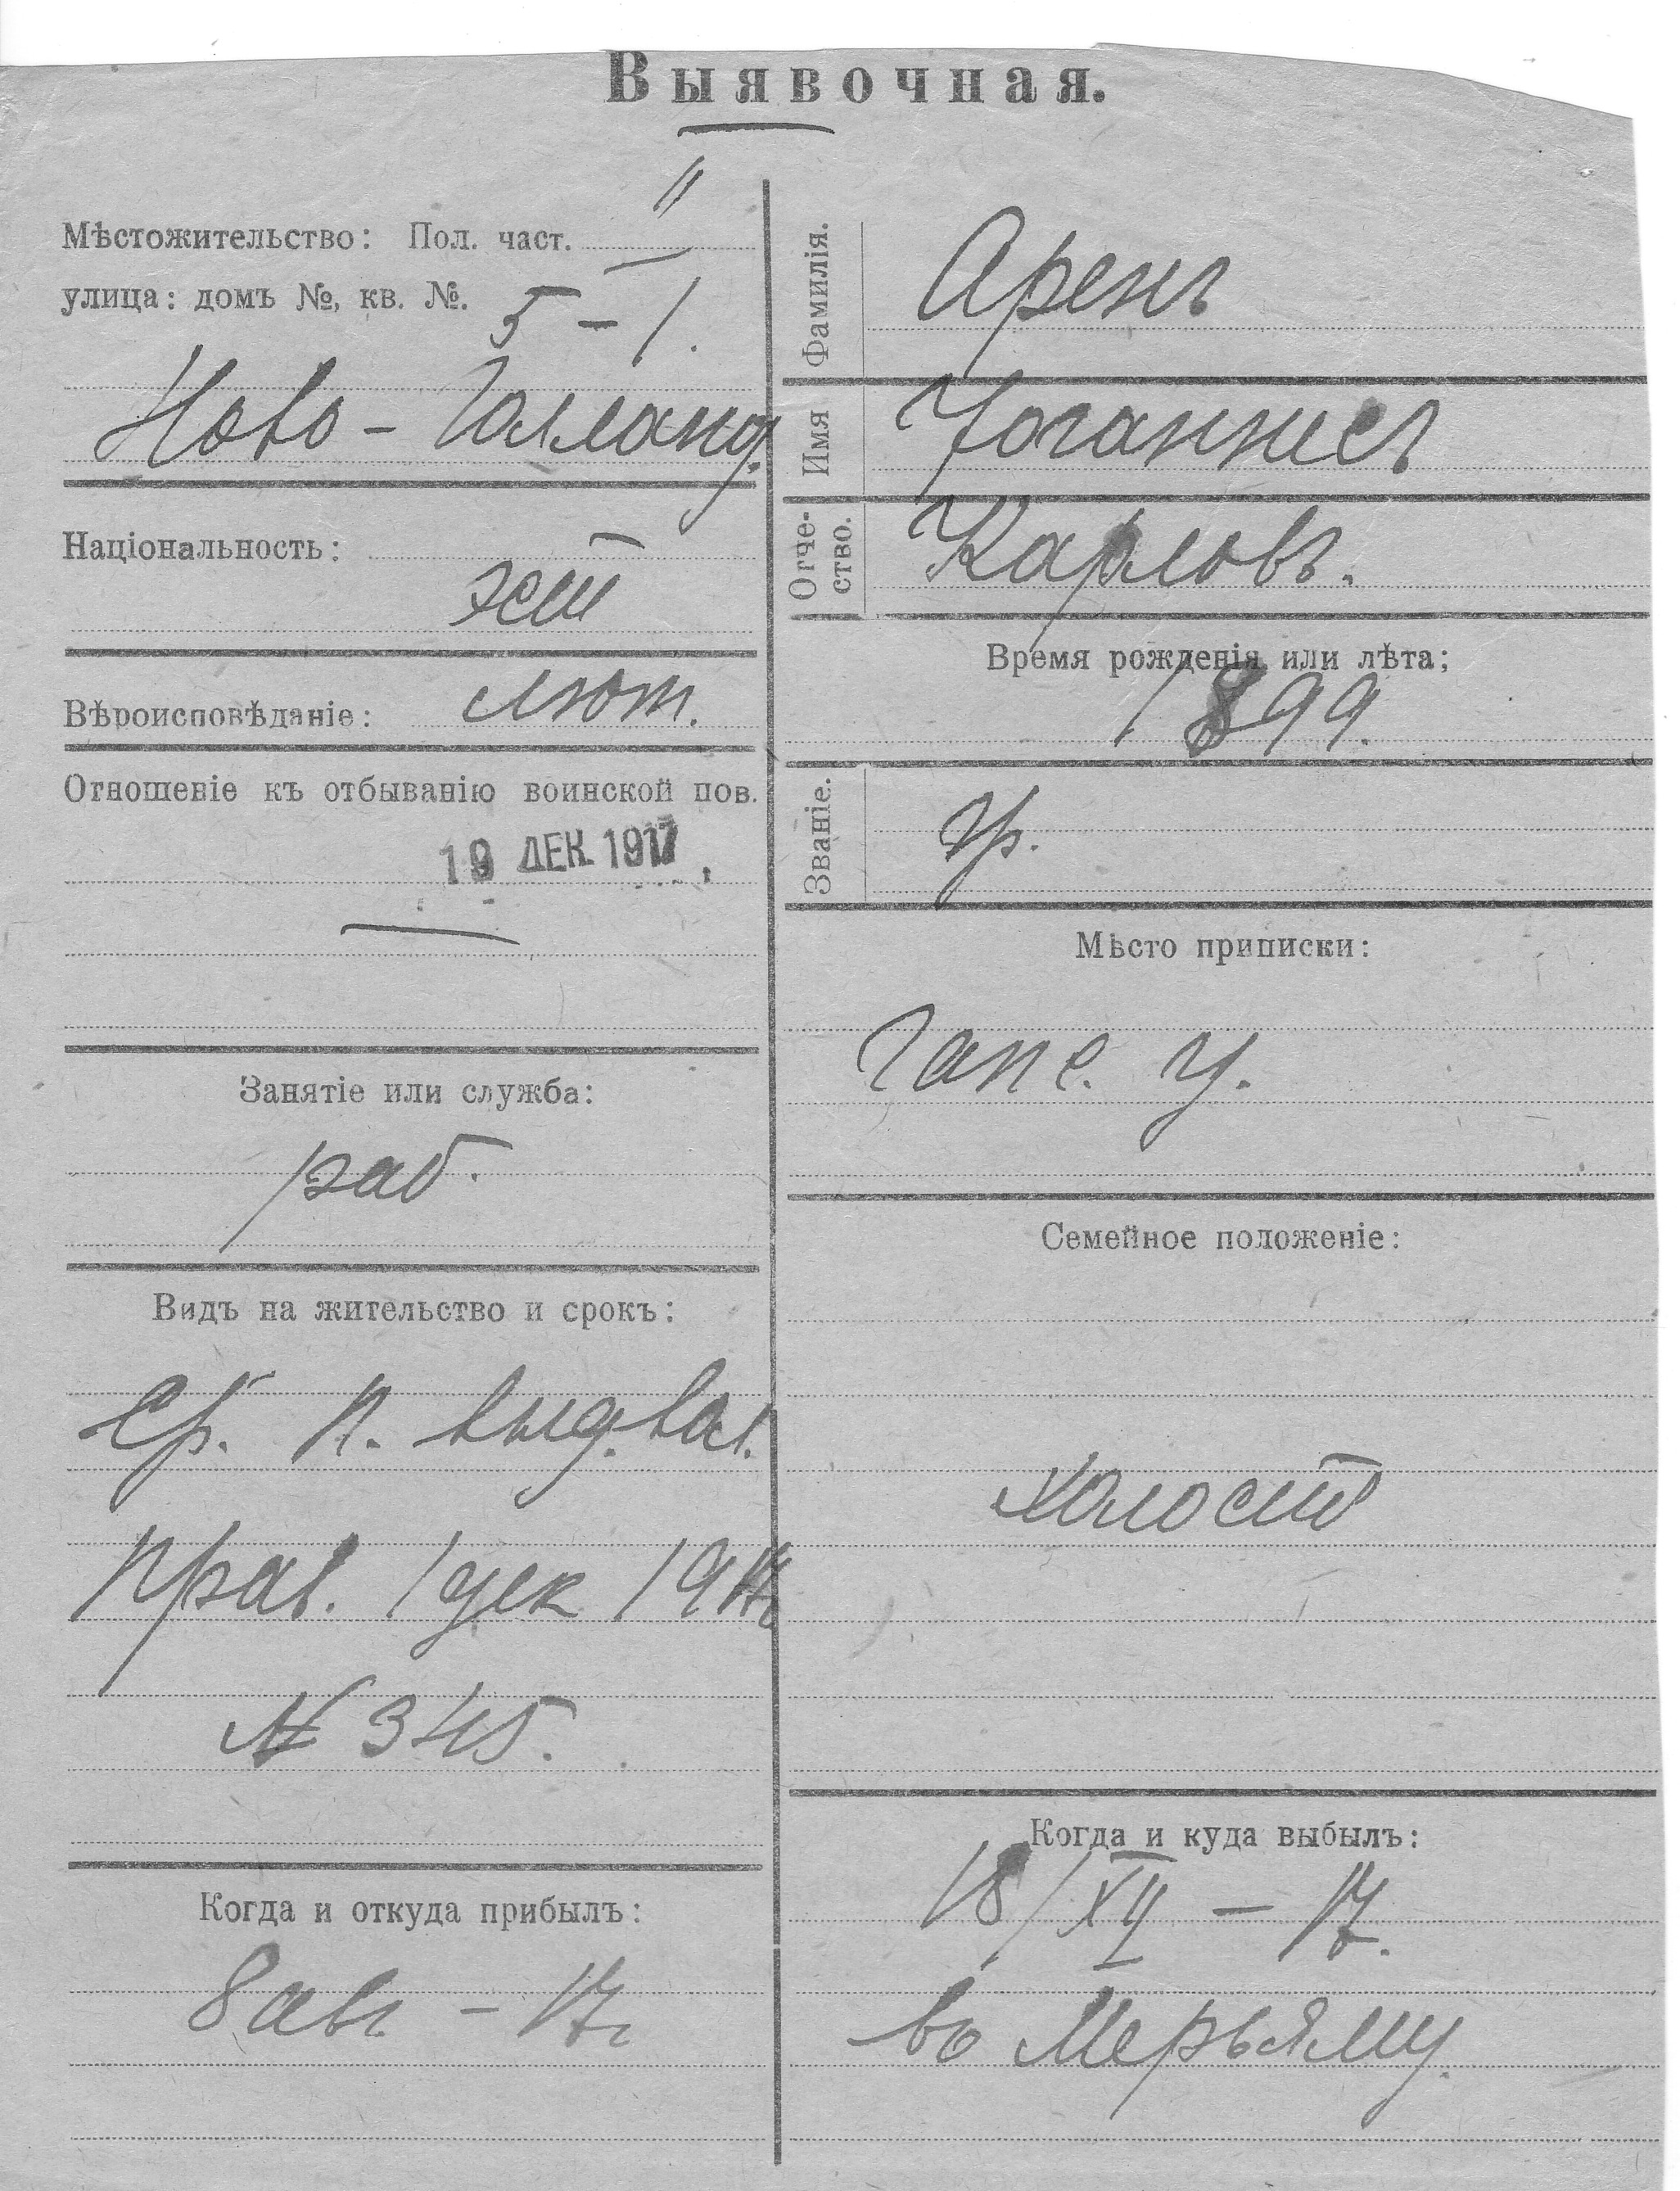 Выявочная.
Мѣстожительство: Пол. част. II
улица: домъ №, кв. №. 5 – 1.
Ново - Голланд.
Національность:
эст
Вѣроисповѣданіе: лют.
Отношеніе къ отбыванію воинской пов.
19 ДЕК. 1917
Занятіе или служба:
раб.
Видъ на жительство и срокъ:
п. выд. вол.
прав. 1 дек 1917
№ 345.
Когда и откуда прибылъ:
8 авг. – 17 г
Фамилія. Аренъ
Имя Іоганнесъ
Отче-
ство. Карловъ.
Время рожденія или лѣта;
1899.
Званіе. гр.
Мѣсто приписки:
Гапс. у.
Семейное положеніе:
холостъ
Когда и куда выбылъ:
18/XII – 17.
въ Мерьяму.